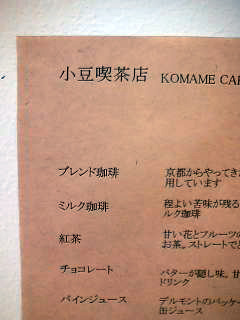 小豆喫茶店 KOMAME CAF
ブレンド珈琲 京都からやってきた
用しています
ミルク珈琲 程よい苦味が残る
ルク珈琲
紅茶 甘い花とフルーツの
お茶。ストレートで
チョコレート バターが隠し味。甘
ドリンク
パインジュース デルモンテのパッケー
缶ジュース